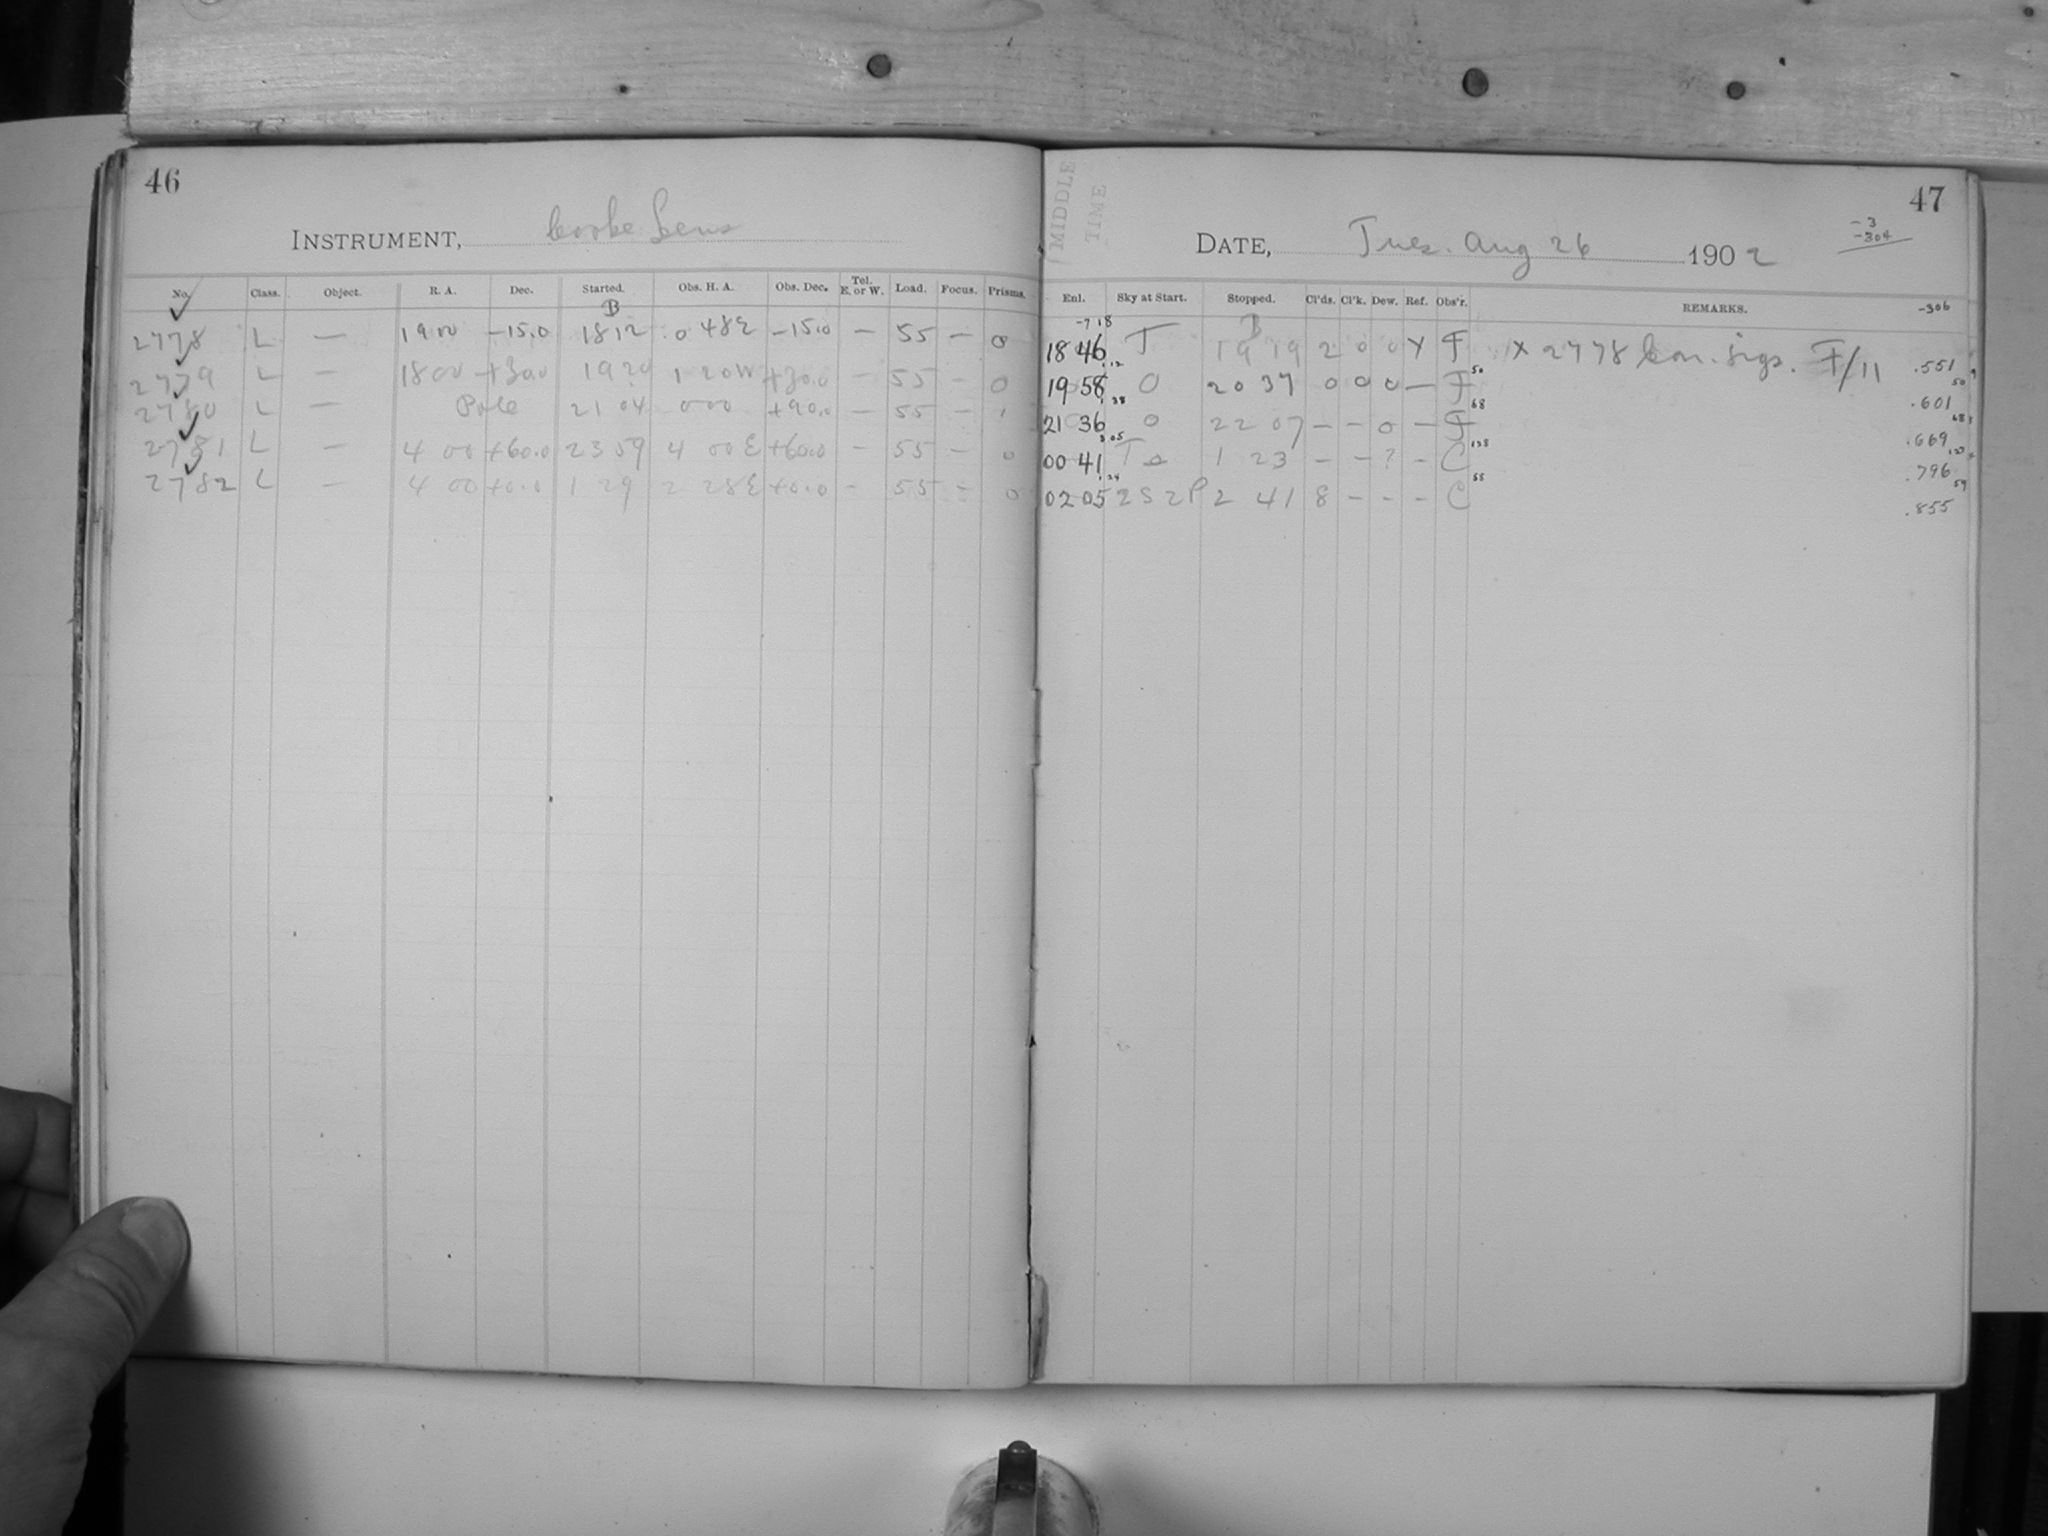 46
INSTRUMENT, Cooke Lens
No. Class. Object. R. A. Dec. Started. Obs. H. A. Obs. Dec. Tel. E. or W. Load. Focus. Prisms.
B
2778 L — 19 00 -15.0 18 12 0 48 E -15.0 — 55 — 0
2779 L — 18 00 +30.0 19 20 1 20 W +30.0 — 55 — 0
2780 L — Pole 21 04 0 00 +90.0 — 55 — 1
2781 L — 4 00 +60.0 23 59 4 00 E +60.0 — 55 — 0
2782 L — 4 00 +0.0 1 29 2 28 E +0.0 — 55 — 0
MIDDLE
TIME
47
-3
-304
DATE, Tues. Aug 26 1902
Enl. Sky at Start. Stopped. Cl'ds. Cl'k. Dew. Ref. Obs'r. REMARKS. -306
-718 B
18 46 T 19 19 2 0 0 X F X 2778 Con. sigs. F/11 .551
1.12 50 50
19 58 0 20 37 0 0 0 — F .601
1.38 68 68
21 36 0 22 07 — — 0 — F .669
3.05 128
00 41 1 23 — — ? - C .796
1.24 55 59
02 05 2S 2P 2 41 8 - - - C .855